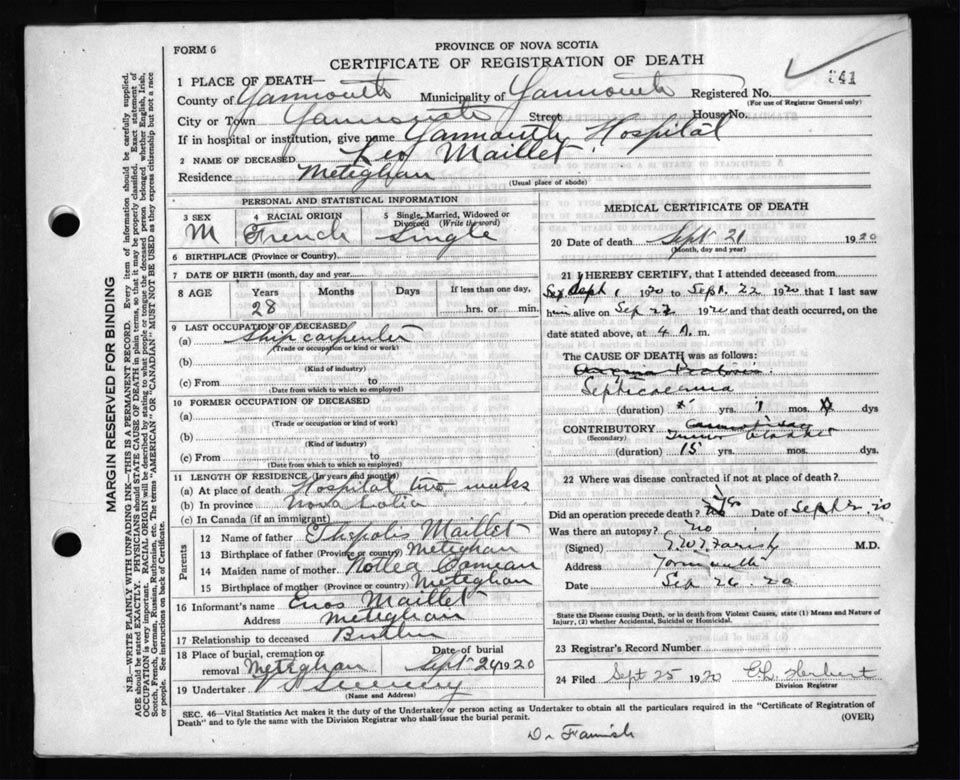 FORM 6
PROVINCE OF NOVA SCOTIA
CERTIFICATE OF REGISTRATION OF DEATH
341
1 PLACE OF DEATH—
County of Yarmouth Municipality of Yarmouth Registered No.
(For use of Registrar General only)
City or Town Yarmouth Street House No.
If in hospital or institution, give name Yarmouth Hospital
2 NAME OF DECEASED Leo Maillet
Residence Meteghan
(Usual place of abode)
PERSONAL AND STATISTICAL INFORMATION
3 SEX 4 RACIAL ORIGIN 5 Single, Married, Widowed or Divorced (Write the word)
M French Single
6 BIRTHPLACE (Province or Country)
7 DATE OF BIRTH (month, day and year)
8 AGE Years Months Days If less than one day,
28 hrs. or min.
9 LAST OCCUPATION OF DECEASED
(a) Ship carpenter
(Trade or occupation or kind of work)
(b)
(Kind of industry)
(c) From to
(Date from which to which so employed)
10 FORMER OCCUPATION OF DECEASED
(a)
(Trade or occupation or kind of work)
(b)
(Kind of industry)
(c) From to
(Date from which to which so employed)
11 LENGTH OF RESIDENCE (In years and months)
(a) At place of death Hospital two weeks
(b) In province Nova Scotia
(c) In Canada (if an immigrant)
Parents
12 Name of father Maillet
13 Birthplace of father (Province or country) Meteghan
14 Maiden name of mother Comeau
15 Birthplace of mother (Province or country) Meteghan
16 Informant's name Enos Maillet
Address Meteghan
17 Relationship to deceased Brother
18 Place of burial, cremation or removal Meteghan Date of burial Sept 24 1920
19 Undertaker V S Sweeny
(Name and Address)
MEDICAL CERTIFICATE OF DEATH
20 Date of death Sept 21 1920
(Month, day and year)
21 I HEREBY CERTIFY, that I attended deceased from
Sept 1 1920 to Sept. 22 1920 that I last saw
him alive on Sep 22 1920 and that death occurred, on the
date stated above, at 4 A. m.
The CAUSE OF DEATH was as follows:
Septicaemia
(duration) yrs. 1 mos. dys
CONTRIBUTORY
(Secondary)
(duration) 15 yrs. mos. dys.
22 Where was disease contracted if not at place of death?
Did an operation precede death? Date of Sept 20
Was there an autopsy? no
(Signed) G.W.T. Farish M.D.
Address Yarmouth
Date Sep 26 20
State the Disease causing Death, or in death from Violent Causes, state (1) Means and Nature of
Injury, (2) whether Accidental, Suicidal or Homicidal.
23 Registrar's Record Number
24 Filed Sept 25 1920 E.L. Herbert
Division Registrar
SEC. 46—Vital Statistics Act makes it the duty of the Undertaker or person acting as Undertaker to obtain all the particulars required in the "Certificate of Registration of
Death" and to fyle the same with the Division Registrar who shall issue the burial permit. (OVER)
Dr Farrish
MARGIN RESERVED FOR BINDING
N.B.—WRITE PLAINLY WITH UNFADING INK—THIS IS A PERMANENT RECORD. Every item of information should be carefully supplied.
AGE should be stated EXACTLY. PHYSICIANS should STATE CAUSE OF DEATH in plain terms, so that it may be properly classified. Exact statement of
OCCUPATION is very important. RACIAL ORIGIN will be described by stating to what people or tongue the deceased person belonged whether English, Irish,
Scotch, French, German, Russian, Ruthenian, etc. The terms "AMERICAN" or "CANADIAN" MUST NOT BE USED as they express citizenship but not a race
or people. See instructions on back of Certificate.